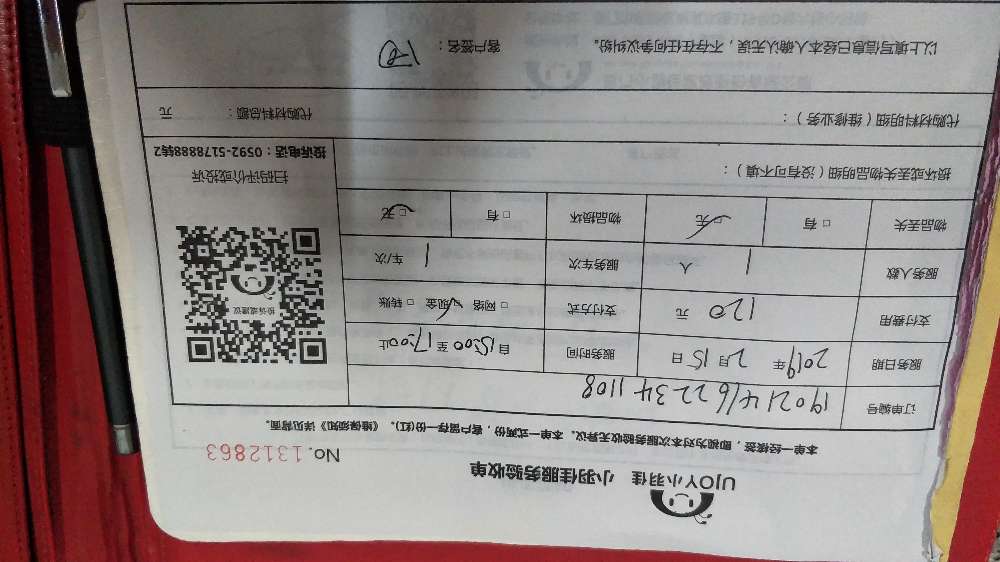 UJOY小羽佳 小羽佳服务验收单
No. 1312863
本单一经核签，即视为对本次服务验收无异议。本单一式两份，客户留存一份(红)。《维保须知》详见背面。
订单编号 1902141622341108
服务日期 2019年 2月 15日 服务时间 自15:00至17:00止
支付费用 120 元 支付方式 □ 网络 □ 现金 □ 转账
服务人数 1 人 服务车次 1 车/次
物品丢失 □ 有 □ 无 物品损坏 □ 有 □ 无
投诉或建议
扫码评价或投诉
投诉电话：0592-5178888转2
损坏或丢失物品明细（没有可不填）：
代购材料明细（维修业务）： 代购材料总额： 元
以上填写信息已经本人确认无误，不存在任何争议纠纷。 客户签名：